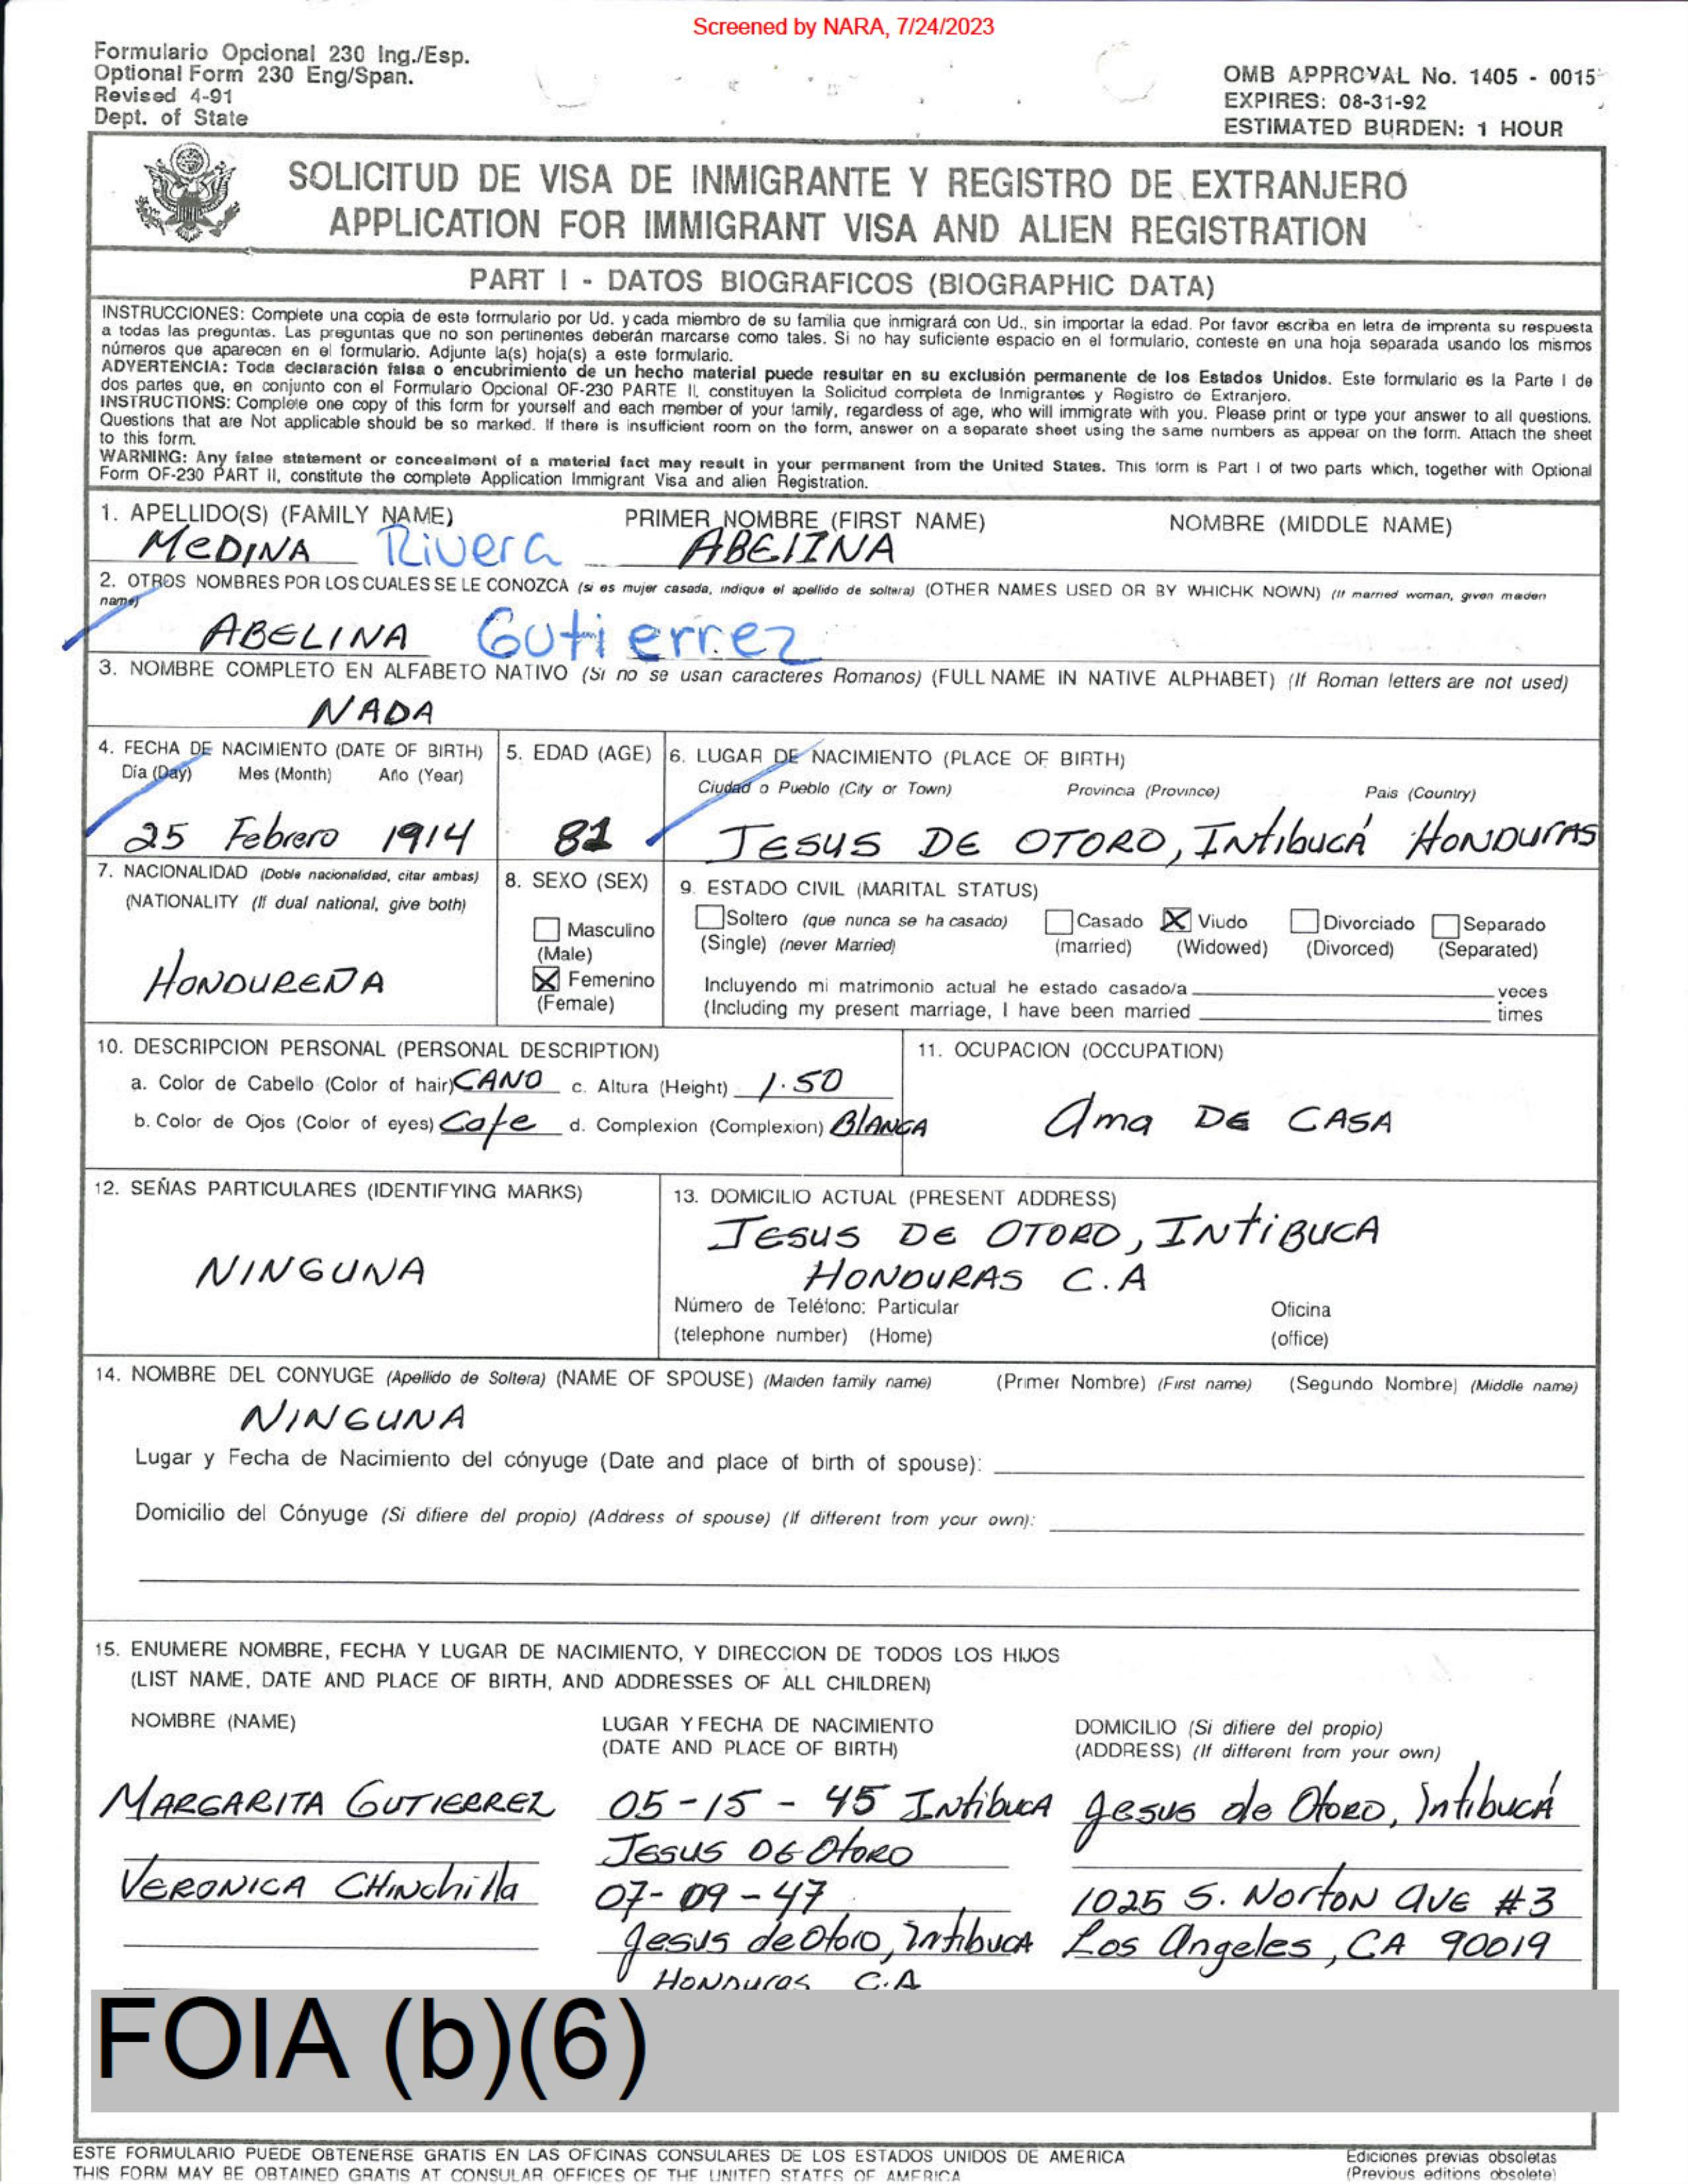 Screened by NARA, 7/24/2023
Formulario Opcional 230 Ing./Esp.
Optional Form 230 Eng/Span.
Revised 4-91
Dept. of State
OMB APPROVAL No. 1405 - 0015
EXPIRES: 08-31-92
ESTIMATED BURDEN: 1 HOUR
SOLICITUD DE VISA DE INMIGRANTE Y REGISTRO DE EXTRANJERO
APPLICATION FOR IMMIGRANT VISA AND ALIEN REGISTRATION
PART I - DATOS BIOGRAFICOS (BIOGRAPHIC DATA)
INSTRUCCIONES: Complete una copia de este formulario por Ud. y cada miembro de su familia que inmigrará con Ud., sin importar la edad. Por favor escriba en letra de imprenta su respuesta
a todas las preguntas. Las preguntas que no son pertinentes deberán marcarse como tales. Si no hay suficiente espacio en el formulario, conteste en una hoja separada usando los mismos
números que aparecen en el formulario. Adjunte la(s) hoja(s) a este formulario.
ADVERTENCIA: Toda declaración falsa o encubrimiento de un hecho material puede resultar en su exclusión permanente de los Estados Unidos. Este formulario es la Parte I de
dos partes que, en conjunto con el Formulario Opcional OF-230 PARTE II, constituyen la Solicitud completa de Inmigrantes y Registro de Extranjero.
INSTRUCTIONS: Complete one copy of this form for yourself and each member of your family, regardless of age, who will immigrate with you. Please print or type your answer to all questions.
Questions that are Not applicable should be so marked. If there is insufficient room on the form, answer on a separate sheet using the same numbers as appear on the form. Attach the sheet
to this form.
WARNING: Any false statement or concealment of a material fact may result in your permanent from the United States. This form is Part I of two parts which, together with Optional
Form OF-230 PART II, constitute the complete Application Immigrant Visa and alien Registration.
1. APELLIDO(S) (FAMILY NAME) PRIMER NOMBRE (FIRST NAME) NOMBRE (MIDDLE NAME)
MEDINA Rivera ABELINA
2. OTROS NOMBRES POR LOS CUALES SE LE CONOZCA (si es mujer casada, indique el apellido de soltera) (OTHER NAMES USED OR BY WHICHK NOWN) (If married woman, given maiden
name)
ABELINA Gutierrez
3. NOMBRE COMPLETO EN ALFABETO NATIVO (Si no se usan caracteres Romanos) (FULL NAME IN NATIVE ALPHABET) (If Roman letters are not used)
NADA
4. FECHA DE NACIMIENTO (DATE OF BIRTH) 5. EDAD (AGE) 6. LUGAR DE NACIMIENTO (PLACE OF BIRTH)
Día (Day) Mes (Month) Año (Year) Ciudad o Pueblo (City or Town) Provincia (Province) Pais (Country)
25 Febrero 1914 81 JESUS DE OTORO, INtibucá HONDURAS
7. NACIONALIDAD (Doble nacionalidad, citar ambas) 8. SEXO (SEX) 9. ESTADO CIVIL (MARITAL STATUS)
(NATIONALITY (If dual national, give both)
HONDUREÑA
Masculino
(Male)
Femenino
(Female)
Soltero (que nunca se ha casado) Casado Viudo Divorciado Separado
(Single) (never Married) (married) (Widowed) (Divorced) (Separated)
Incluyendo mi matrimonio actual he estado casado/a veces
(Including my present marriage, I have been married times
10. DESCRIPCION PERSONAL (PERSONAL DESCRIPTION) 11. OCUPACION (OCCUPATION)
a. Color de Cabello (Color of hair) CANO c. Altura (Height) 1.50
b. Color de Ojos (Color of eyes) Cafe d. Complexion (Complexion) BlANCA
Ama DE CASA
12. SEÑAS PARTICULARES (IDENTIFYING MARKS) 13. DOMICILIO ACTUAL (PRESENT ADDRESS)
NINGUNA
JESUS DE OTORO, INTIBUCA
HONDURAS C.A
Número de Teléfono: Particular Oficina
(telephone number) (Home) (office)
14. NOMBRE DEL CONYUGE (Apellido de Soltera) (NAME OF SPOUSE) (Maiden family name) (Primer Nombre) (First name) (Segundo Nombre) (Middle name)
NINGUNA
Lugar y Fecha de Nacimiento del cónyuge (Date and place of birth of spouse):
Domicilio del Cónyuge (Si difiere del propio) (Address of spouse) (If different from your own):
15. ENUMERE NOMBRE, FECHA Y LUGAR DE NACIMIENTO, Y DIRECCION DE TODOS LOS HIJOS
(LIST NAME, DATE AND PLACE OF BIRTH, AND ADDRESSES OF ALL CHILDREN)
NOMBRE (NAME) LUGAR Y FECHA DE NACIMIENTO DOMICILIO (Si difiere del propio)
(DATE AND PLACE OF BIRTH) (ADDRESS) (If different from your own)
MARGARITA GUTIERREZ 05-15-45 INtibucA Jesus de Otoro, Intibucá
JESUS DE OtoRO
VERONICA CHINchilla 07-09-47 1025 S. NORTON AVE #3
Jesus de Otoro, IntibucA Los Angeles, CA 90019
HONDURAS C.A
FOIA (b)(6)
ESTE FORMULARIO PUEDE OBTENERSE GRATIS EN LAS OFICINAS CONSULARES DE LOS ESTADOS UNIDOS DE AMERICA Ediciones previas obsoletas
THIS FORM MAY BE OBTAINED GRATIS AT CONSULAR OFFICES OF THE UNITED STATES OF AMERICA (Previous editions obsolete)